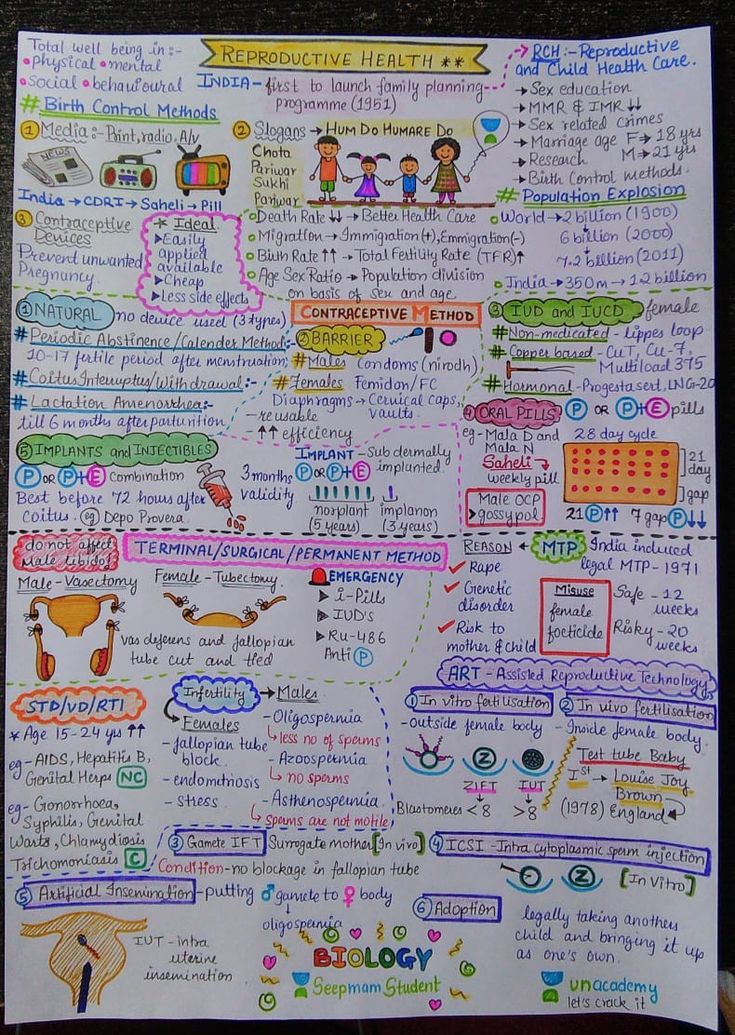 REPRODUCTIVE HEALTH **
Total well being in :-
• physical • mental
• social • behavioural
INDIA - first to launch family planning
programme (1951)
RCH :- Reproductive
and Child Health Care.
→ Sex education
→ MMR & IMR ↓↓
→ Sex related crimes
→ Marriage age F → 18 yrs
→ Research M → 21 yrs
→ Birth Control methods.
# Birth Control Methods
① Media :- Print, radio, A/v
NEWS
India → CDRI → Saheli → Pill
② Slogans → HUM DO HUMARE DO
Chota
Pariwar
Sukhi
Pariwar
③ Contraceptive
Devices
Prevent unwanted
Pregnancy.
* Ideal
➤ Easily
applied
available
➤ Cheap
➤ Less side effects
• Death Rate ↓↓ → Better Health Care
• Migration → Immigration (+), Emmigration (-)
• Birth Rate ↑↑ → Total Fertility Rate (TFR) ↑
• Age Sex Ratio → Population division
on basis of sex and age
# Population Explosion
• World → 2 billion (1900)
6 billion (2000)
7.2 billion (2011)
• India → 350 m → 1.2 billion
CONTRACEPTIVE METHOD
① NATURAL no device used (3 types)
# Periodic Abstinence/Calender Method :-
10-17 fertile period after menstruation
# Coitus Interuptus/Withdrawal :-
# Lactation Amenorrhea :-
till 6 months after parturition
② BARRIER
# Males Condoms (nirodh)
# Females Femidon/FC
Diaphragms → Cervical caps,
vaults.
- reusable
- ↑↑ efficiency
③ IUD and IUCD female
# Non-medicated - lippes loop
# Copper based - CuT, Cu-7,
Multiload 375
# Hormonal - Progestasert, LNG-20
④ ORAL PILLS P OR P+E pills
eg - Mala D and
Mala N
Saheli
↳ weekly pill
Male OCP
➤ gossypol
28 day cycle
21
day
gap
21 P ↑↑ 7 gap P ↓↓
⑤ IMPLANTS and INJECTIBLES
P OR P+E Combination
Best before 72 hours after
coitus. eg Depo Provera
3 months
validity
IMPLANT - Sub dermally
P OR P+E implanted.
norplant implanon
(5 years) (3 years)
do not affect
Male libido!
TERMINAL/SURGICAL/PERMANENT METHOD
Male - Vasectomy
Female - Tubectomy
vas deferens and fallopian
tube cut and tied
EMERGENCY
➤ i-Pills
➤ IUD's
➤ Ru-486
Anti P
REASON ← MTP India induced
legal MTP - 1971
✓ Rape
✓ Genetic
disorder
✓ Risk to
mother & child
Misuse
female
foeticide
Safe - 12
weeks
Risky - 20
weeks
ART - Assisted Reproductive Technology
STD/VD/RTI
* Age 15-24 yrs ↑↑
eg - AIDS, Hepatitis B,
Genital Herps NC
eg - Gonorrhoea,
Syphilis, Genital
Warts, Chlamydiosis
Trichomoniasis C
Infertility → Males
Females
- fallopian tube
block.
- endometriosis
- stress.
- Oligospermia
↳ less no of sperms
- Azoospermia
↳ no sperms
- Asthenospermia
↳ sperms are not motile
① In vitro fertilisation
- Outside female body
Z
ZIFT IUT
Blastomeres < 8 > 8
② In vivo fertilisation
- Inside female body.
Test tube Baby
Ist → Louise Joy
Brown
(1978) England
③ Gamete IFT Surrogate mother [In vivo]
Condition - no blockage in fallopian tube
④ ICSI - Intra cytoplasmic sperm injection
Z [In Vitro]
⑤ Artificial Insemination - putting ♂ gamete to ♀ body
oligospermia
IUT - intra
uterine
insemination
⑥ Adoption
legally taking anothers
child and bringing it up
as one's own.
BIOLOGY
Seepmam Student
unacademy
let's crack it